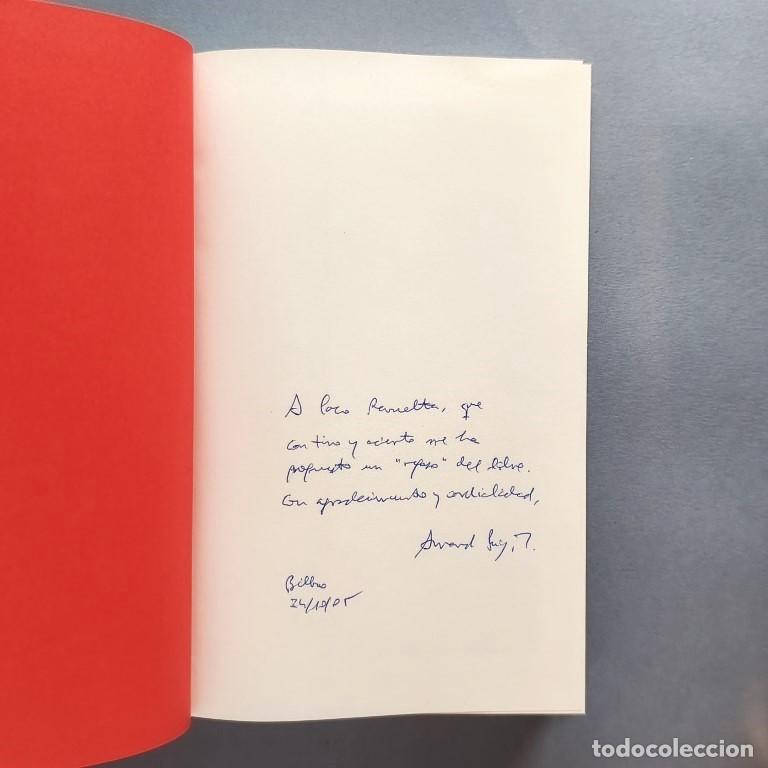 A Paco Revuelta, que
con tino y acierto me ha
propuesto un "repaso" del libro.
Con agradecimiento y cordialidad,
Bilbao
24/10/05
todocoleccion